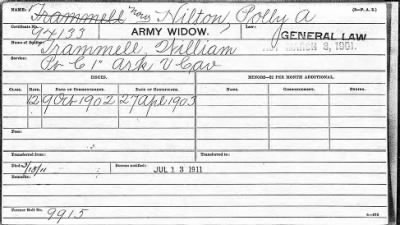 NAME: Trammell now Hilton, Polly A (3—P. A. S.)
Certificate No. 74133 ARMY WIDOW. Law: GENERAL LAW
ACT MARCH 3, 1901.
Name of Soldier: Trammell, William
Service: Pvt C 1" Ark V Cav
ISSUES. MINORS—$2 PER MONTH ADDITIONAL.
CLASS. RATE. DATE OF COMMENCEMENT. DATE OF CERTIFICATE. NAMES. COMMENCEMENT. ENDING.
12 9 Oct 1902 27 Apl 1903
Fees:
Transferred from: Transferred to:
Died Bureau notified: JUL 13 1911
Remarks:
Former Roll No.
9915